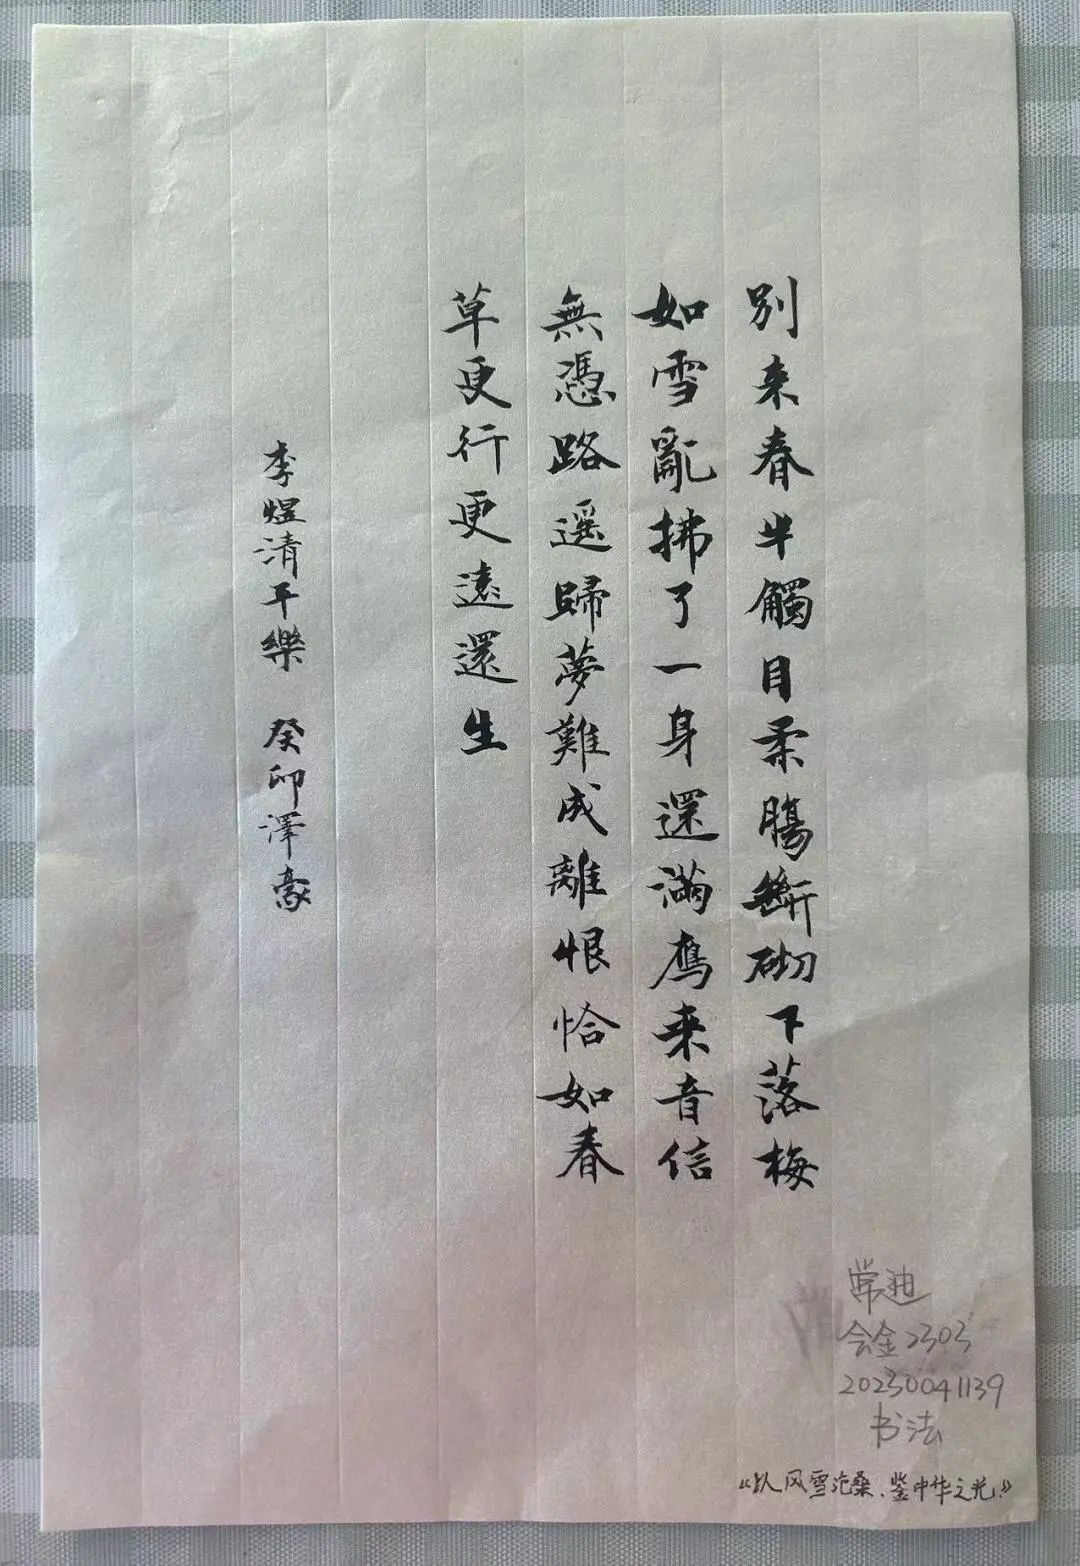 別来春半觸目柔腸斷砌下落梅
如雪亂拂了一身還滿鴈来音信
無憑路遥歸夢難成離恨恰如春
草更行更遠還生
李煜清平樂 癸卯澤豪
常迪
会金2303
20230041139
书法
《以风雪沧桑、鉴中华之光》